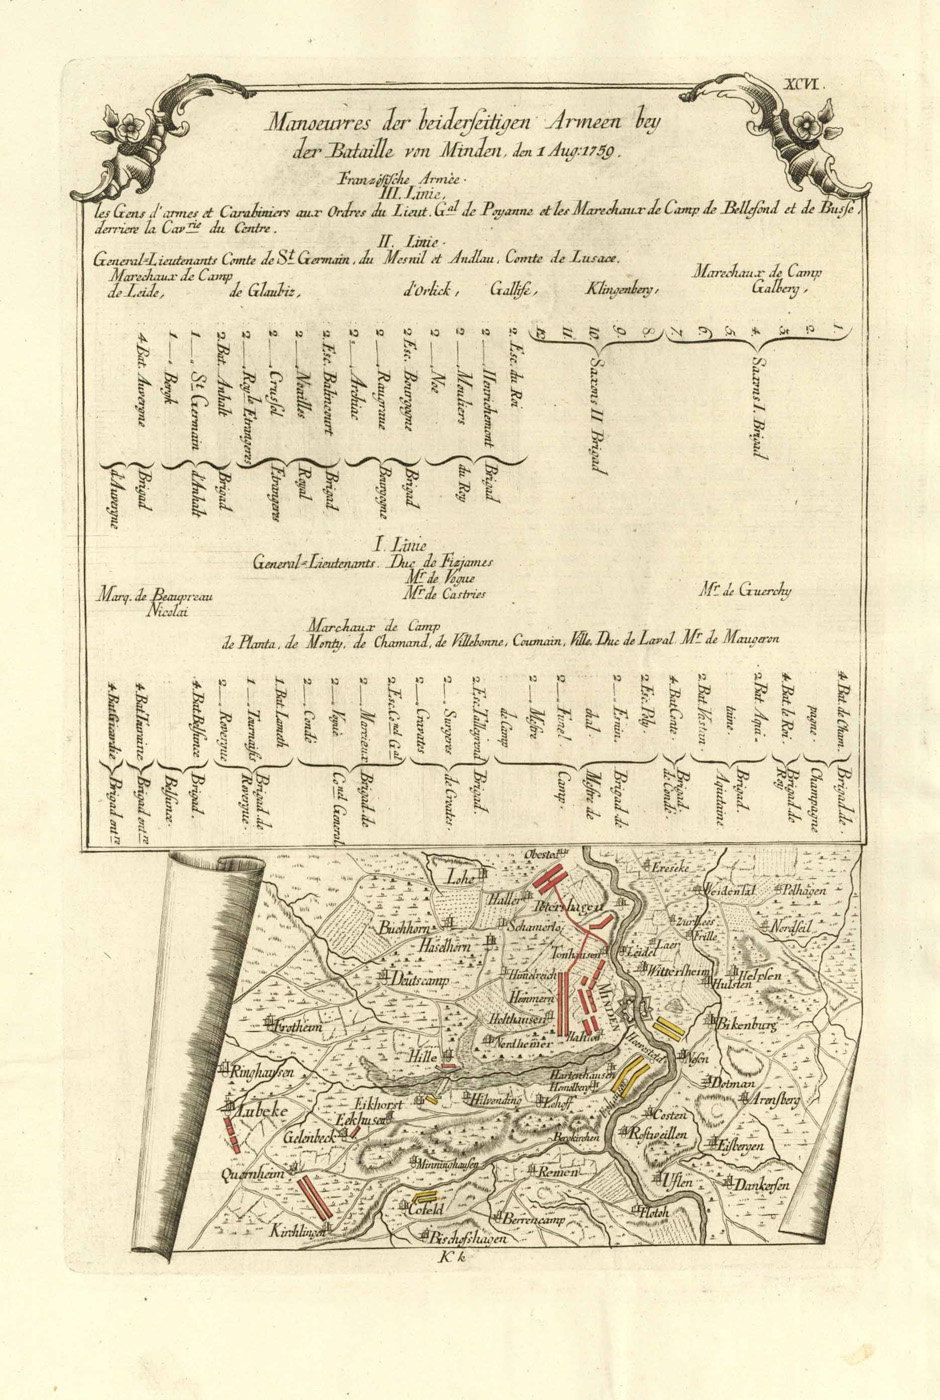 XCVI.
Manoeuvres der beiderseitigen Armeen bey
der Bataille von Minden, den 1 Aug: 1759.
Französische Armée.
III. Linie,
les Gens d'armes et Carabiniers aux Ordres du Lieut. Gal de Poyanne et les Marechaux de Camp de Bellefond et de Busse,
derriere la Cavrie du Centre.
II. Linie.
General=Lieutenants Comte de St Germain, du Mesnil et Andlau, Comte de Lusace.
Marechaux de Camp
Marechaux de Camp
de Leide, de Glaubiz, d'Orlick, Gallise, Klingenberg, Galberg,
1.
2.
3.
4.
5.
6.
7.
Saxons I. Brigad
8.
9.
10.
11.
12.
Saxons II Brigad
2. Esc. du Roi
2 — Henrichemont
2 — Mouliers
2 — Noe
Brigad
du Roy
2. Esc. Bourgogne
2 — Raugraue
2. — Archiac
Brigad
Bourgogne
2. Esc. Balincourt
2 — Noailles
2 — Crussol
2 — Royle Etrangeres
Brigad
Royal
Etrangeres
2. Bat. Anhalt
1 — St Germain
1 — Bergk
Brigad
d'Anhalt
4. Bat. Auvergne
Brigad
d'Auvergne
I. Linie
General=Lieutenants. Duc de Fizjames
Mr de Vogue
Marq. de Beaupreau Mr de Castries Mr de Guerchy
Nicolai
Marchaux de Camp
de Planta, de Monty, de Chamand, de Villebonne, Coumain, Ville, Duc de Laval Mr de Maugeron
4. Bat. de Cham.
pagne.
Brigad. de
Champagne
4. Bat. le Roi.
Brigad. de
Roy
2. Bat. Aqui-
taine.
2. Bat. Vastan.
Brigad.
Aquitaine
4. Bat. Conte.
Brigad.
de Condi
2. Esc. Roy.
2 — Esnin.
chal.
2 — Fwnel.
2 — Mestre
de Camp
Brigad. de
Mestre de
Camp.
2. Esc. Talleyrend
2 — Surgeres
2 — Cravates
Brigad.
de Croates.
2. Esc. Conel Gal
2 — Morcieux
2 — Vogué
2 — Condé
Brigad. de
Conel General
1. Bat. Loneth
1 — Tournaisis
2 — Rovergue
Brigad. de
Rovergue.
4. Bat. Belsunce
Brigad.
Belsunce.
4. Bat. Touraine
Brigad entre
4. Bat. Picardie
Brigad entre
Lohe
Haller
Petershagen
Ereseke
Veidental
Pelhagen
Buchhorn
Schamerlo
Nordfeil
Haselhorn
Frille
Laer
Leidel
Tonhausen
Deutscamp
Himelreich
Wittersheim
Helpsen
Hulsten
Hemmern
MINDEN
Frotheim
Holthausen
Bikenburg
Hahlen
Nordhemer
Hille
Nosn
Ringhausen
Hartenhausen
Hemelberg
Dotman
Lubeke
Eikhorst
Hilvending
Arensberg
Eekhusen
Costen
Gelenbeck
Rostweillen
Bergkirchen
Eisbergen
Quernheim
Minninghausen
Remen
Uflen
Dankersen
Cofeld
Flotoh
Berrencamp
Kirchlingen
Bischofshagen
K k